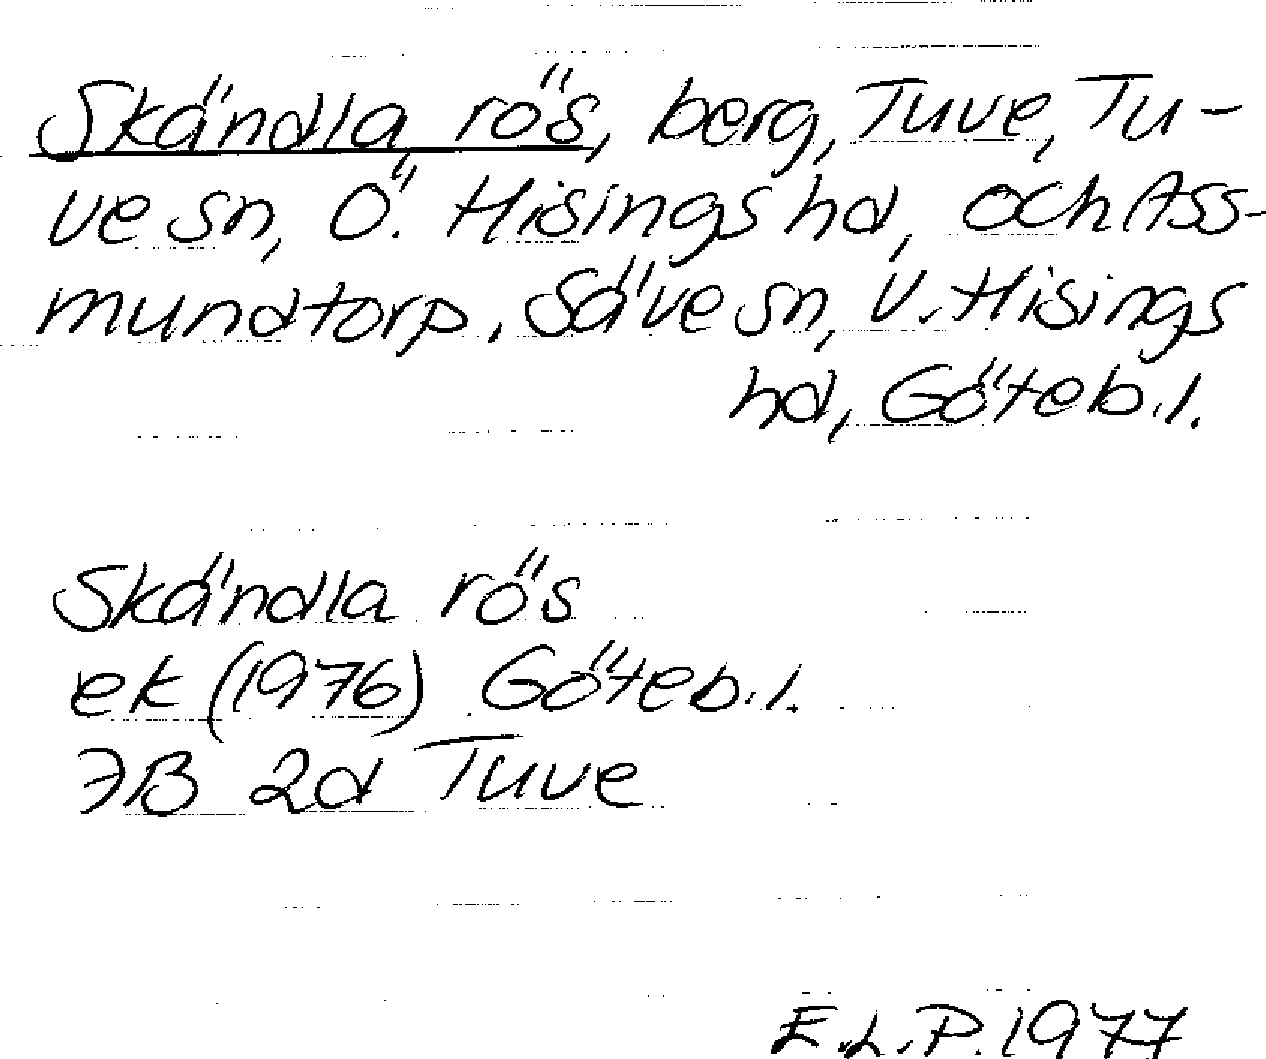 Skändla rös, berg, Tuve, Tu-
ve sn, Ö. Hisings hd, och Ass-
mundtorp, Säve sn, V. Hisings
hd, Göteb.l.
Skändla rös
ek (1976) Göteb.l.
7B 2d Tuve
E.L.P. 1977